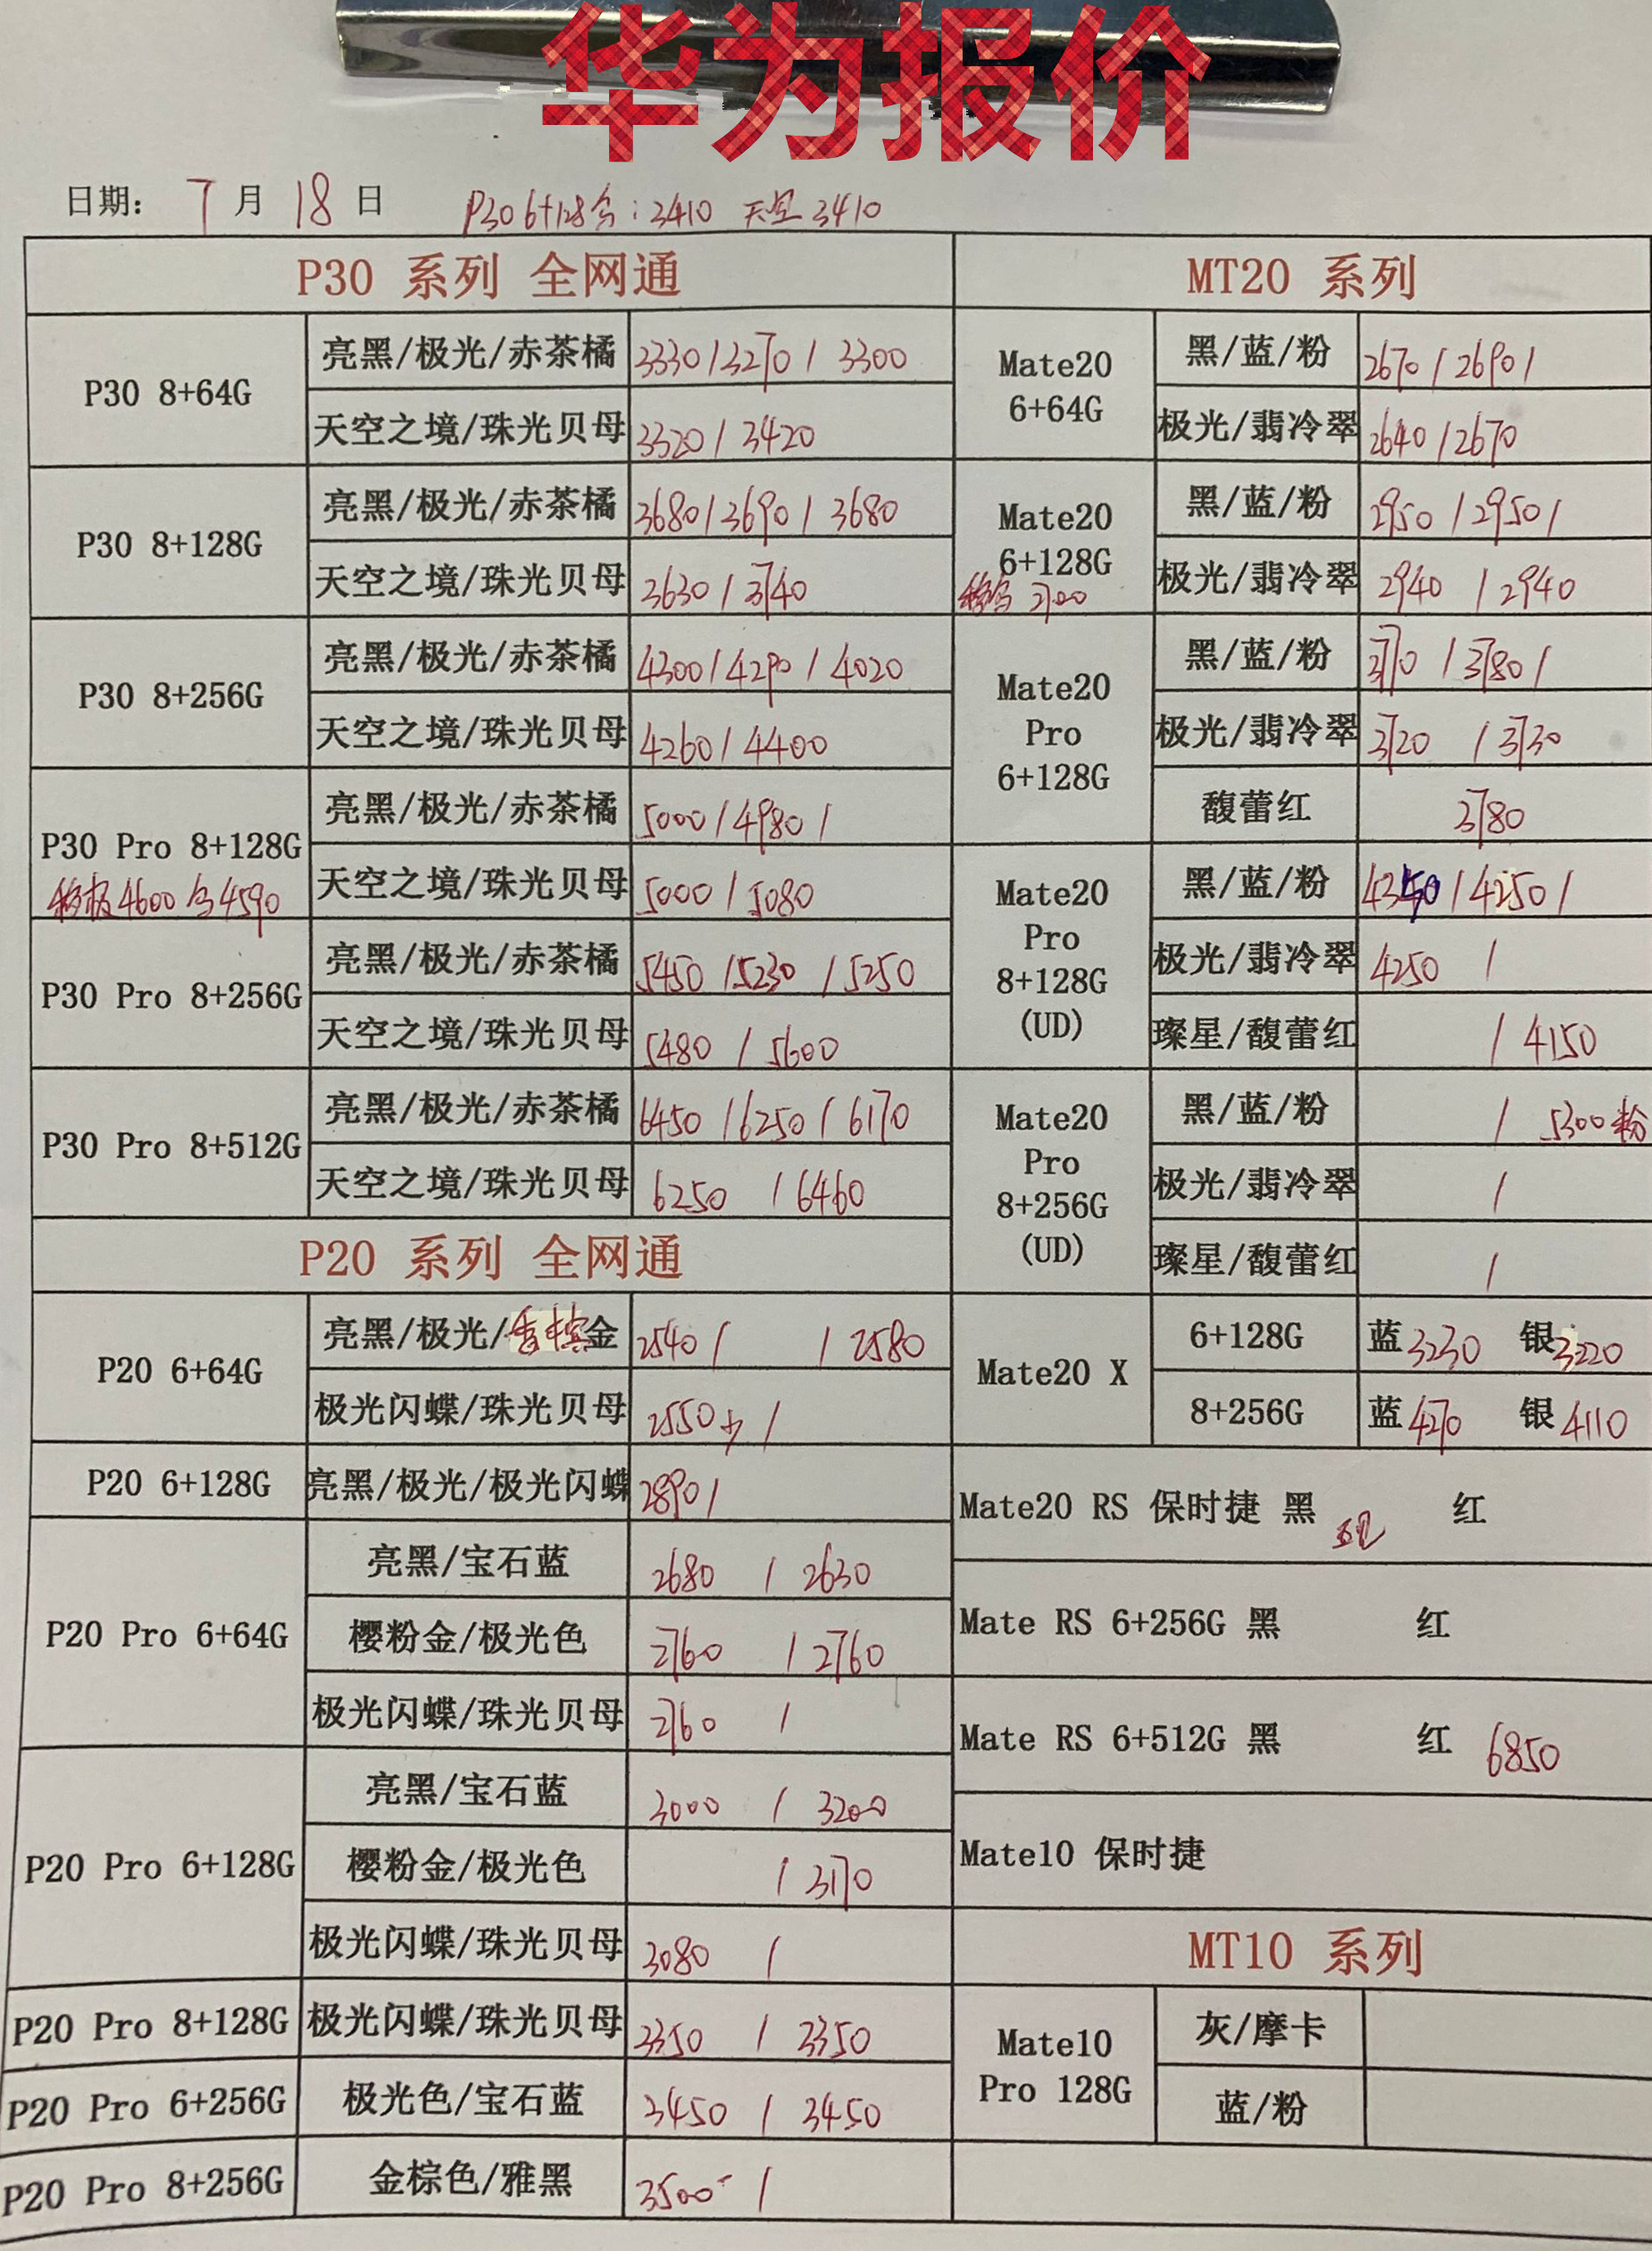 华为报价
日期: 7 月 18 日 P30 6+128 : 3410 天空 3410
P30 系列 全网通
P30 8+64G 亮黑/极光/赤茶橘 3330/3270/3300
天空之境/珠光贝母 3320/3420
P30 8+128G 亮黑/极光/赤茶橘 3680/3690/3680
天空之境/珠光贝母 3630/3740
P30 8+256G 亮黑/极光/赤茶橘 4300/4290/4020
天空之境/珠光贝母 4260/4400
P30 Pro 8+128G 亮黑/极光/赤茶橘 5000/4980/
4600 / 4590 天空之境/珠光贝母 5000/5080
P30 Pro 8+256G 亮黑/极光/赤茶橘 5450/5230/5250
天空之境/珠光贝母 5480/5600
P30 Pro 8+512G 亮黑/极光/赤茶橘 6450/6250/6170
天空之境/珠光贝母 6250/6460
P20 系列 全网通
P20 6+64G 亮黑/极光/香槟金 2540/ /2580
极光闪蝶/珠光贝母 2550少/
P20 6+128G 亮黑/极光/极光闪蝶 2890/
P20 Pro 6+64G 亮黑/宝石蓝 2680/2630
樱粉金/极光色 2760/2760
极光闪蝶/珠光贝母 2760/
P20 Pro 6+128G 亮黑/宝石蓝 3000/3200
樱粉金/极光色 /3170
极光闪蝶/珠光贝母 3080/
P20 Pro 8+128G 极光闪蝶/珠光贝母 3350/3350
P20 Pro 6+256G 极光色/宝石蓝 3450/3450
P20 Pro 8+256G 金棕色/雅黑 3500/
MT20 系列
Mate20
6+64G
黑/蓝/粉 2670/2690/
极光/翡冷翠 2640/2670
Mate20
6+128G
2700
黑/蓝/粉 2950/2950/
极光/翡冷翠 2940/2940
Mate20
Pro
6+128G
黑/蓝/粉 3770/3780/
极光/翡冷翠 3720/3730
馥蕾红 3780
Mate20
Pro
8+128G
(UD)
黑/蓝/粉 4340/4250/
极光/翡冷翠 4250/
璨星/馥蕾红 /4150
Mate20
Pro
8+256G
(UD)
黑/蓝/粉 / 5300粉
极光/翡冷翠 /
璨星/馥蕾红 /
Mate20 X
6+128G 蓝3230 银3220
8+256G 蓝4270 银4110
Mate20 RS 保时捷 黑 红
Mate RS 6+256G 黑 红
Mate RS 6+512G 黑 红 6850
Mate10 保时捷
MT10 系列
Mate10
Pro 128G
灰/摩卡
蓝/粉